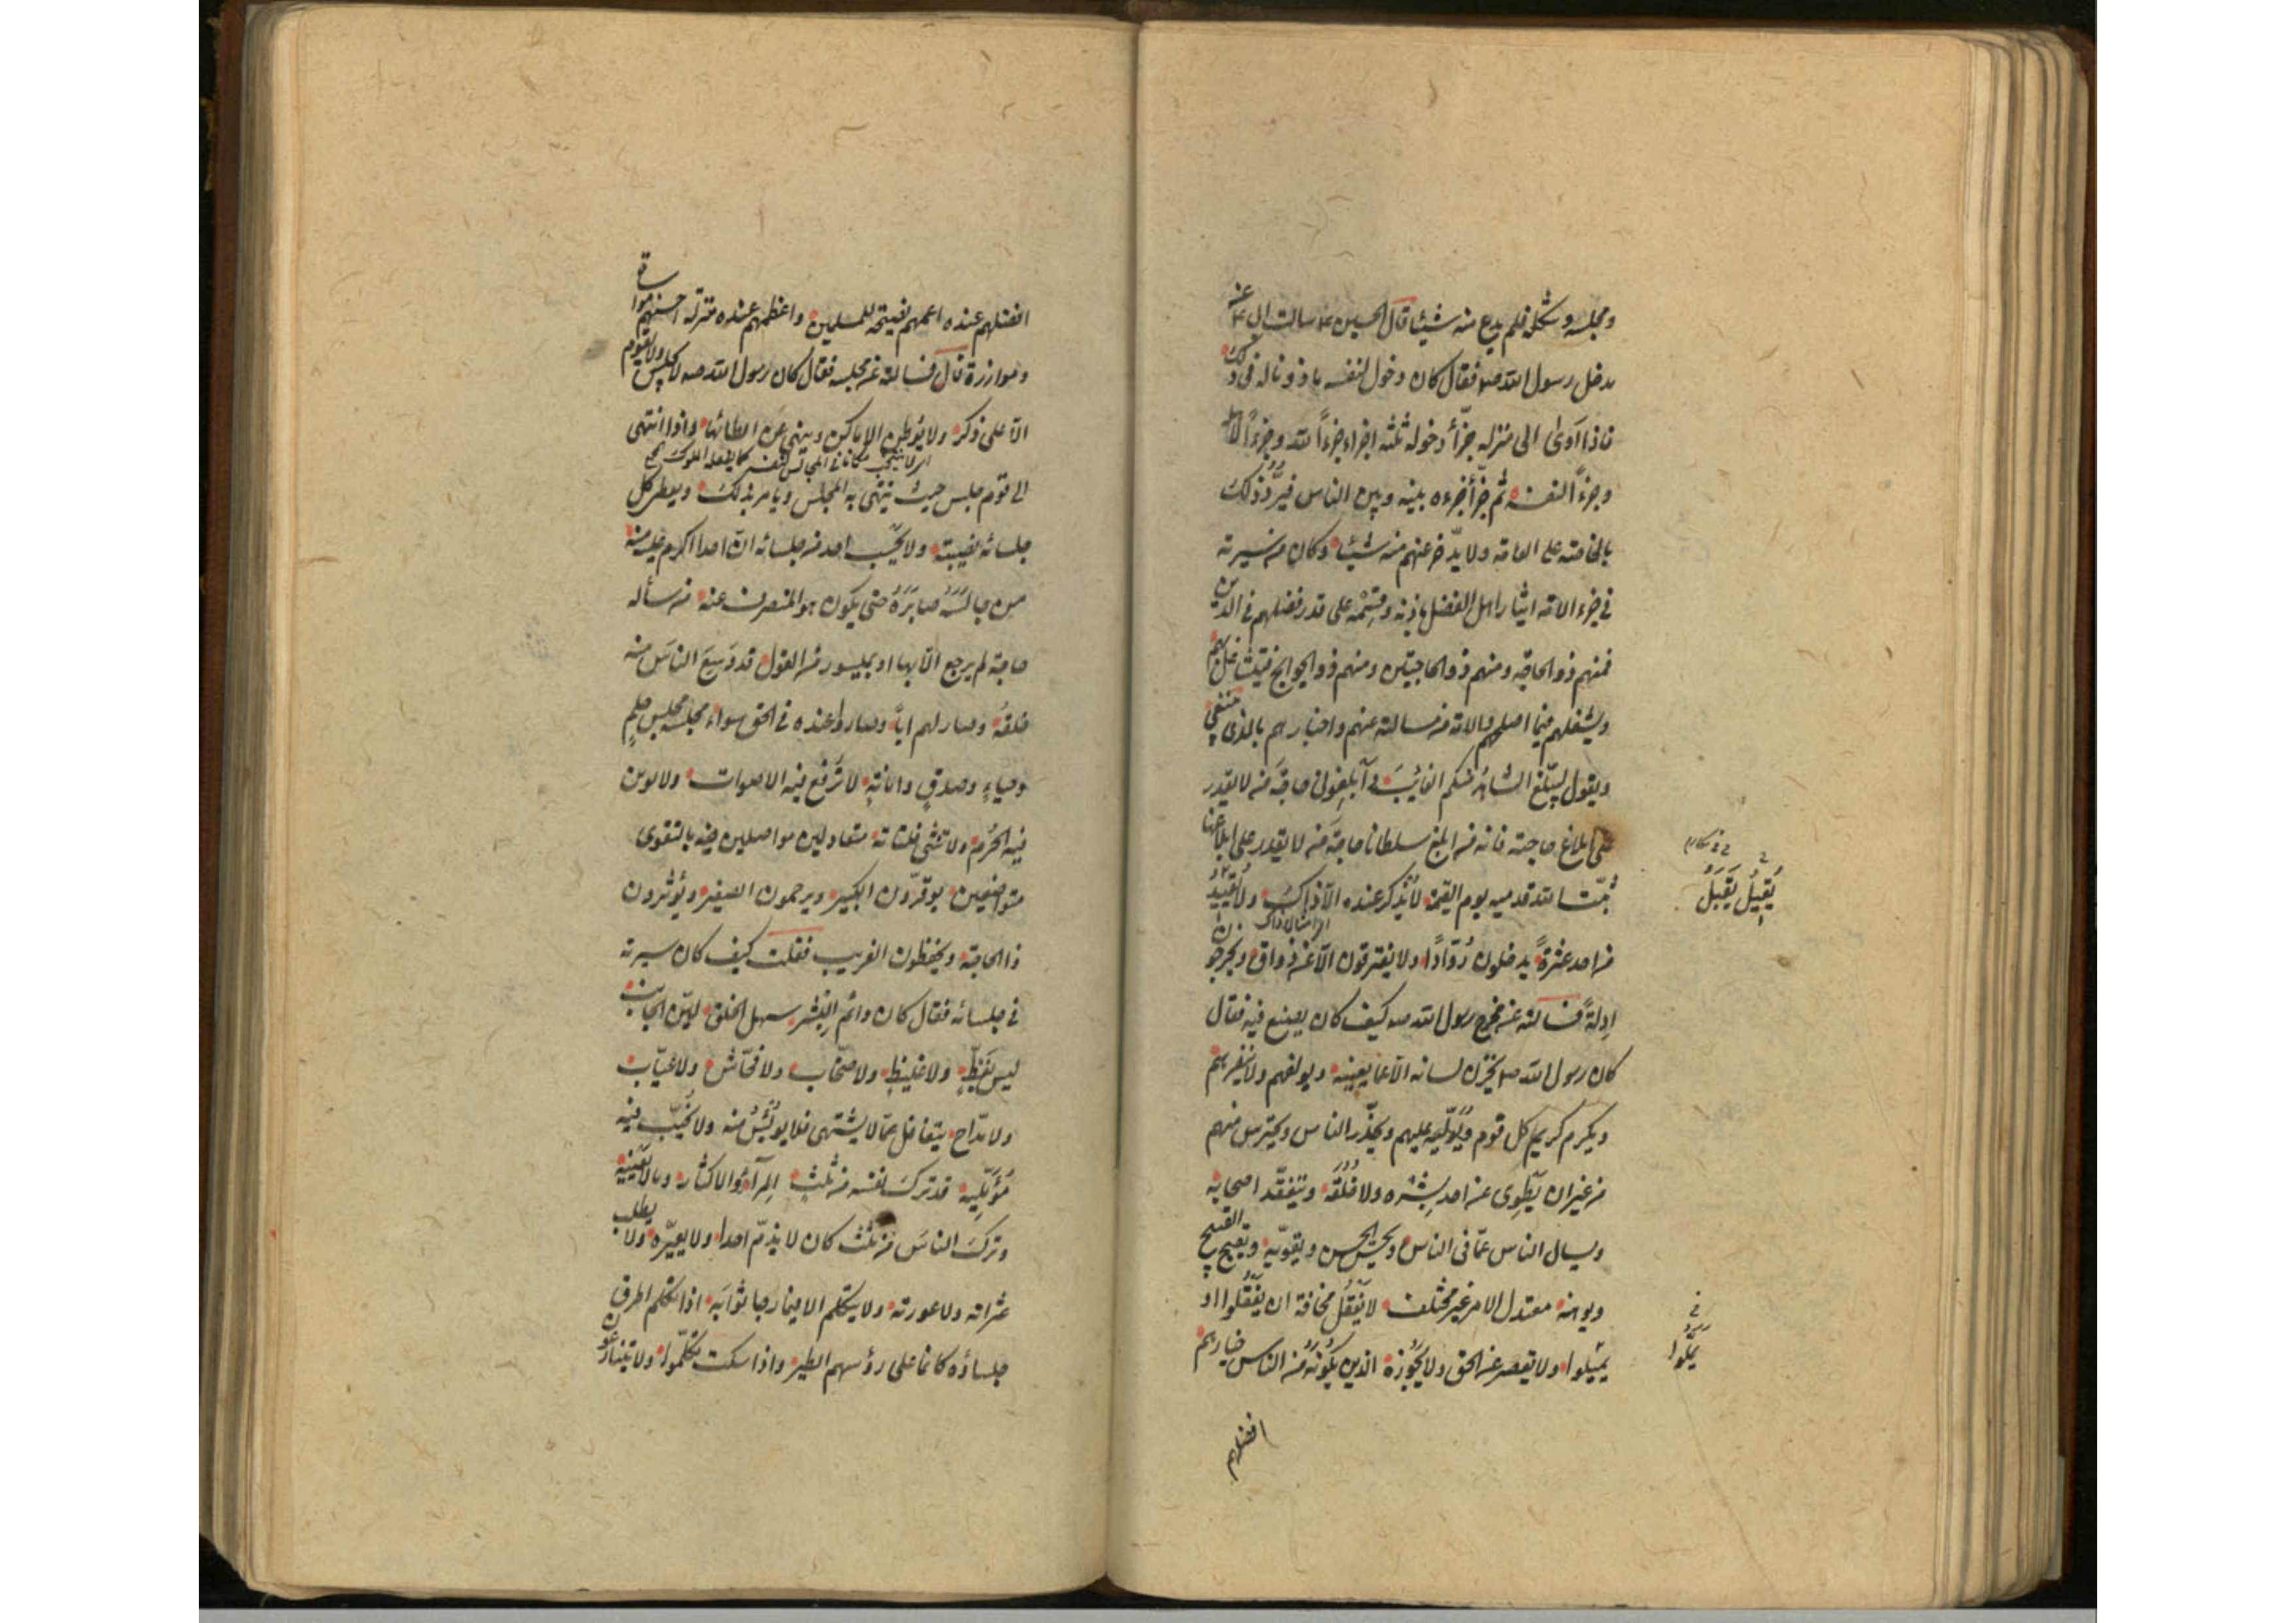 ومجلسه وشكله فلم يدع منه شيئا قال الحسين ع سالت ابي ع عن
مدخل رسول الله ص فقال كان دخول لنفسه ماذونا له في ذلك
فاذا آوى الى منزله جزّأ دخوله ثلثة اجزاء جزءاً لله وجزءاً لاهله
وجزءاً لنفسه ثم جزّأ جزءه بينه وبين الناس فيردّ ذلك
بالخاصة على العامة ولا يدّخر عنهم منه شيئا وكان من سيرته
في جزء الامة ايثار اهل الفضل باذنه وقسمه على قدر فضلهم في الدين
فمنهم ذو الحاجة ومنهم ذو الحاجتين ومنهم ذو الحوايج فيتشاغل بهم
ويشغلهم فيما اصلحهم والامة من مسالته عنهم واخبارهم بالذى ينبغي
ويقول ليبلّغ الشاهد منكم الغائب وابلغونى حاجة من لا يقدر
على ابلاغ حاجته فانه من ابلغ سلطانا حاجة من لا يقدر على ابلاغها
ثبّت الله قدميه يوم القيمة لا يُذكر عنده الّا ذلك ولا يقيد
من احد عثرة يدخلون رُوّاداً ولا يفترقون الّا عن ذواق ويخرجون
ادلة فسالته عن مخرج رسول الله ص كيف كان يصنع فيه فقال
كان رسول الله ص يخزن لسانه الّا عما يعينه ويولفهم ولا ينفرهم
ويكرم كريم كل قوم ويُولّيه عليهم ويحذّر الناس ويحترس منهم
من غير ان يطوى عن احد بشره ولا خُلُقه ويتفقّد اصحابه
ويسال الناس عمّا فى الناس ويحسّن الحسن ويقوّيه ويقبّح القبيح
ويوهنه معتدل الامر غير مختلف لا يَغْفُل مخافة ان يَغْفُلوا او
يميلوا ولا يقصر عن الحق ولا يجوزه الذين يلونه من الناس خيارهم
افضلهم
يُقيلُ يَقبَل
يملّوا
افضلهم عنده اعمهم نصيحة للمسلمين واعظمهم عنده منزلة احسنهم مواساة
وموازرة قال فسالته عن مجلسه فقال كان رسول الله ص لا يجلس ولا يقوم
الّا على ذكر ولا يُوطن الاماكن وينهى عن ايطانها واذا انتهى
الى قوم جلس حيث ينتهى به المجلس ويامر بذلك ويعطى كل
جلسائه نصيبه ولا يحسب احد من جلسائه انّ احدا اكرم عليه منه
من جالسه صابَرَهُ حتى يكون هو المنصرف عنه من سأله
حاجة لم يرجع الّا بها او بميسور من القول قد وَسِعَ الناسَ منه
خلقه وصار لهم اباً وصاروا عنده في الحق سواء مجلسه مجلس حلمٍ
وحياءٍ وصدقٍ وامانةٍ لا تُرفع فيه الاصوات ولا توبن
فيه الحُرَم ولا تُثنى فلتاته متعادلين متواصلين فيه بالتقوى
متواضعين يوقّرون الكبير ويرحمون الصغير ويُؤثرون
ذا الحاجة ويحفظون الغريب فقلت كيف كان سيرته
في جلسائه فقال كان دائم البِشر سهل الخلق ليّن الجانب
ليس بفظّ ولا غليظٍ ولا صخّاب ولا فحّاش ولا عيّاب
ولا مدّاح يتغافل عمّا لا يشتهى فلا يُؤيس منه ولا يخيّب فيه
مُؤمِّليه قد ترك نفسه من ثلث المِراء والاكثار وما لا يعنيه
وترك الناسَ من ثلث كان لا يذمّ احدا ولا يعيّره ولا يطلب
عثراته ولا عورته ولا يتكلم الا فيما رجا ثوابه اذا تكلم اطرق
جلساؤه كانما على رؤسهم الطير واذا سكت تكلّموا ولا يتنازعون